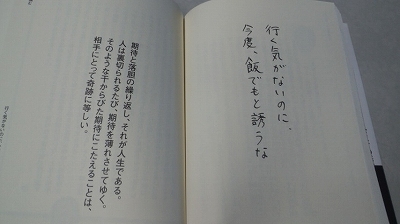 行く気がないのに、
今度、飯でもと誘うな
期待と落胆の繰り返し、それが人生である。
人は裏切られるたび、期待を薄れさせてゆく。
そのような干からびた期待にこたえることは、
相手にとって奇跡に等しい。